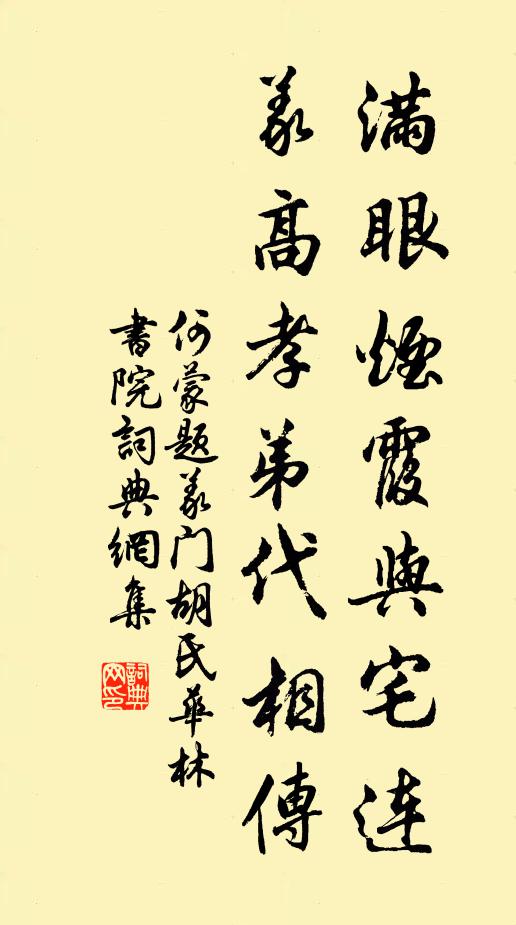 滿眼煙霞與宅連
義高孝弟代相傳
何蒙題義门胡氏華林
書院詞典網集
詞典网印